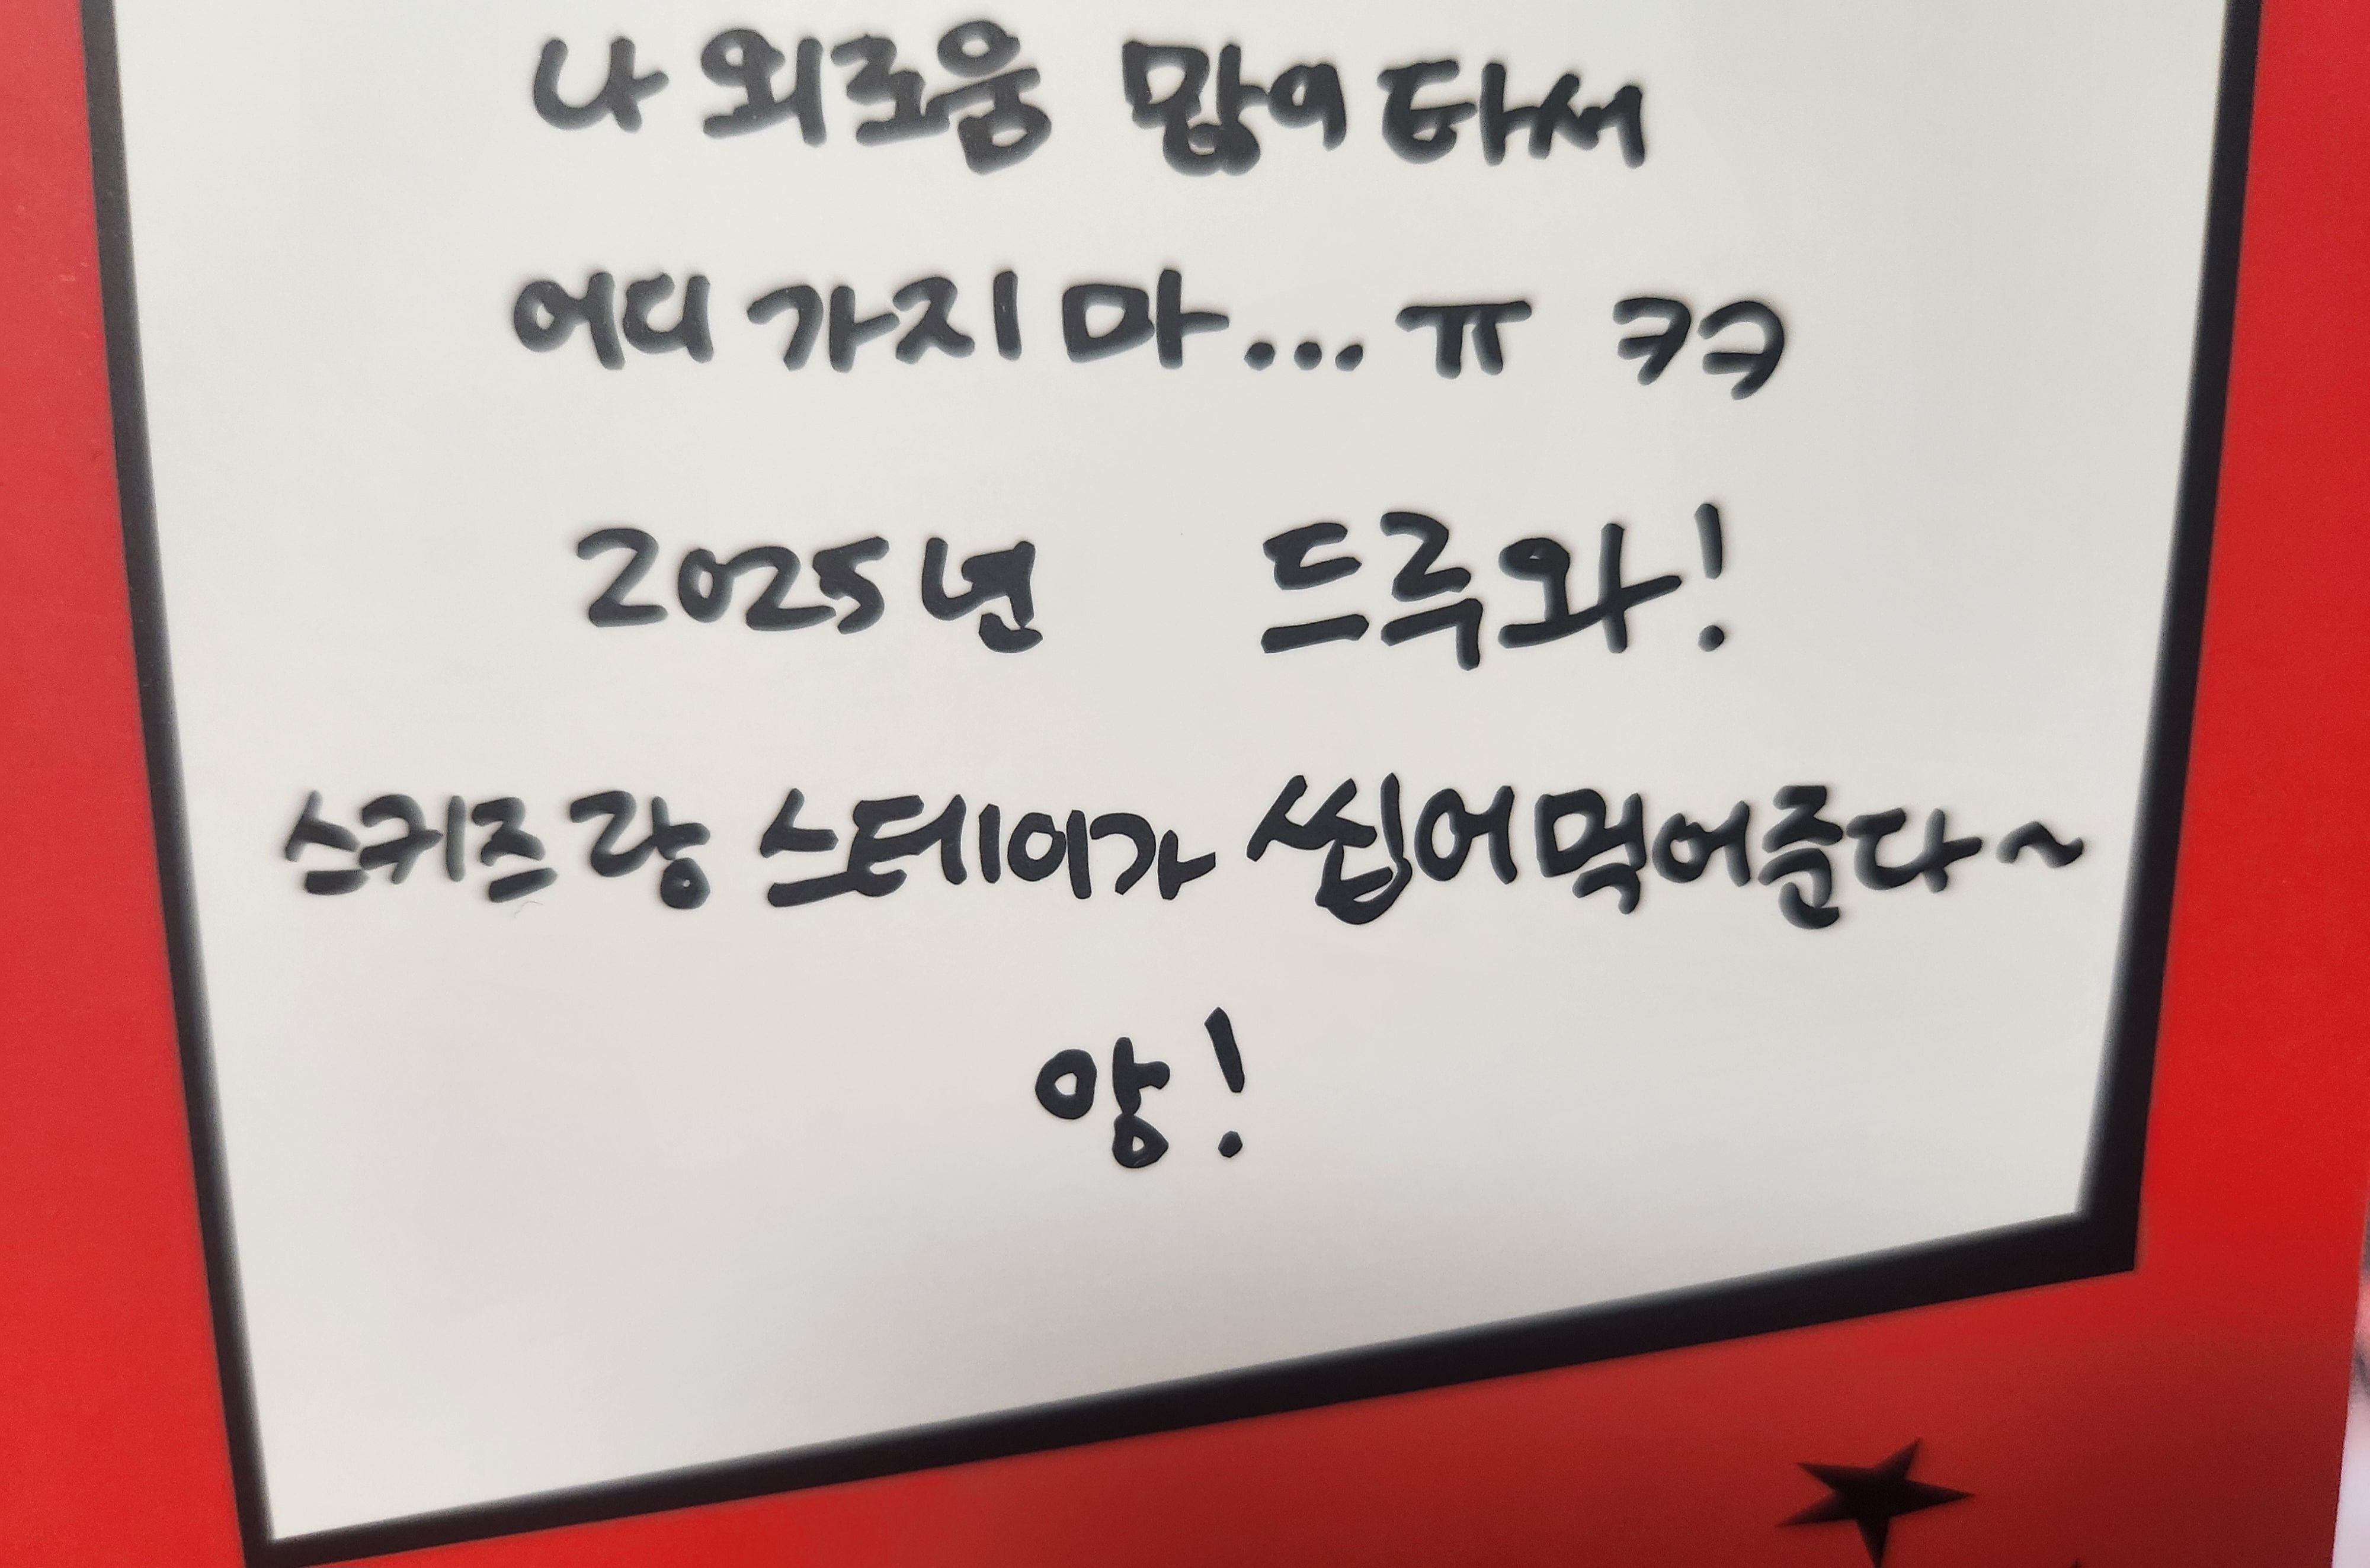 나 외로움 많이 타서
어디 가지 마... ㅠ ㅋㅋ
2025년 드루와!
스키즈랑 스테이가 씹어먹어준다~
앙!